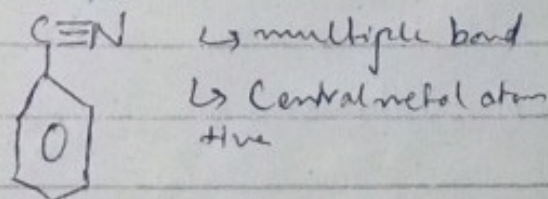 C≡N ↳ multiple bond
↳ Central metal atom
+ive